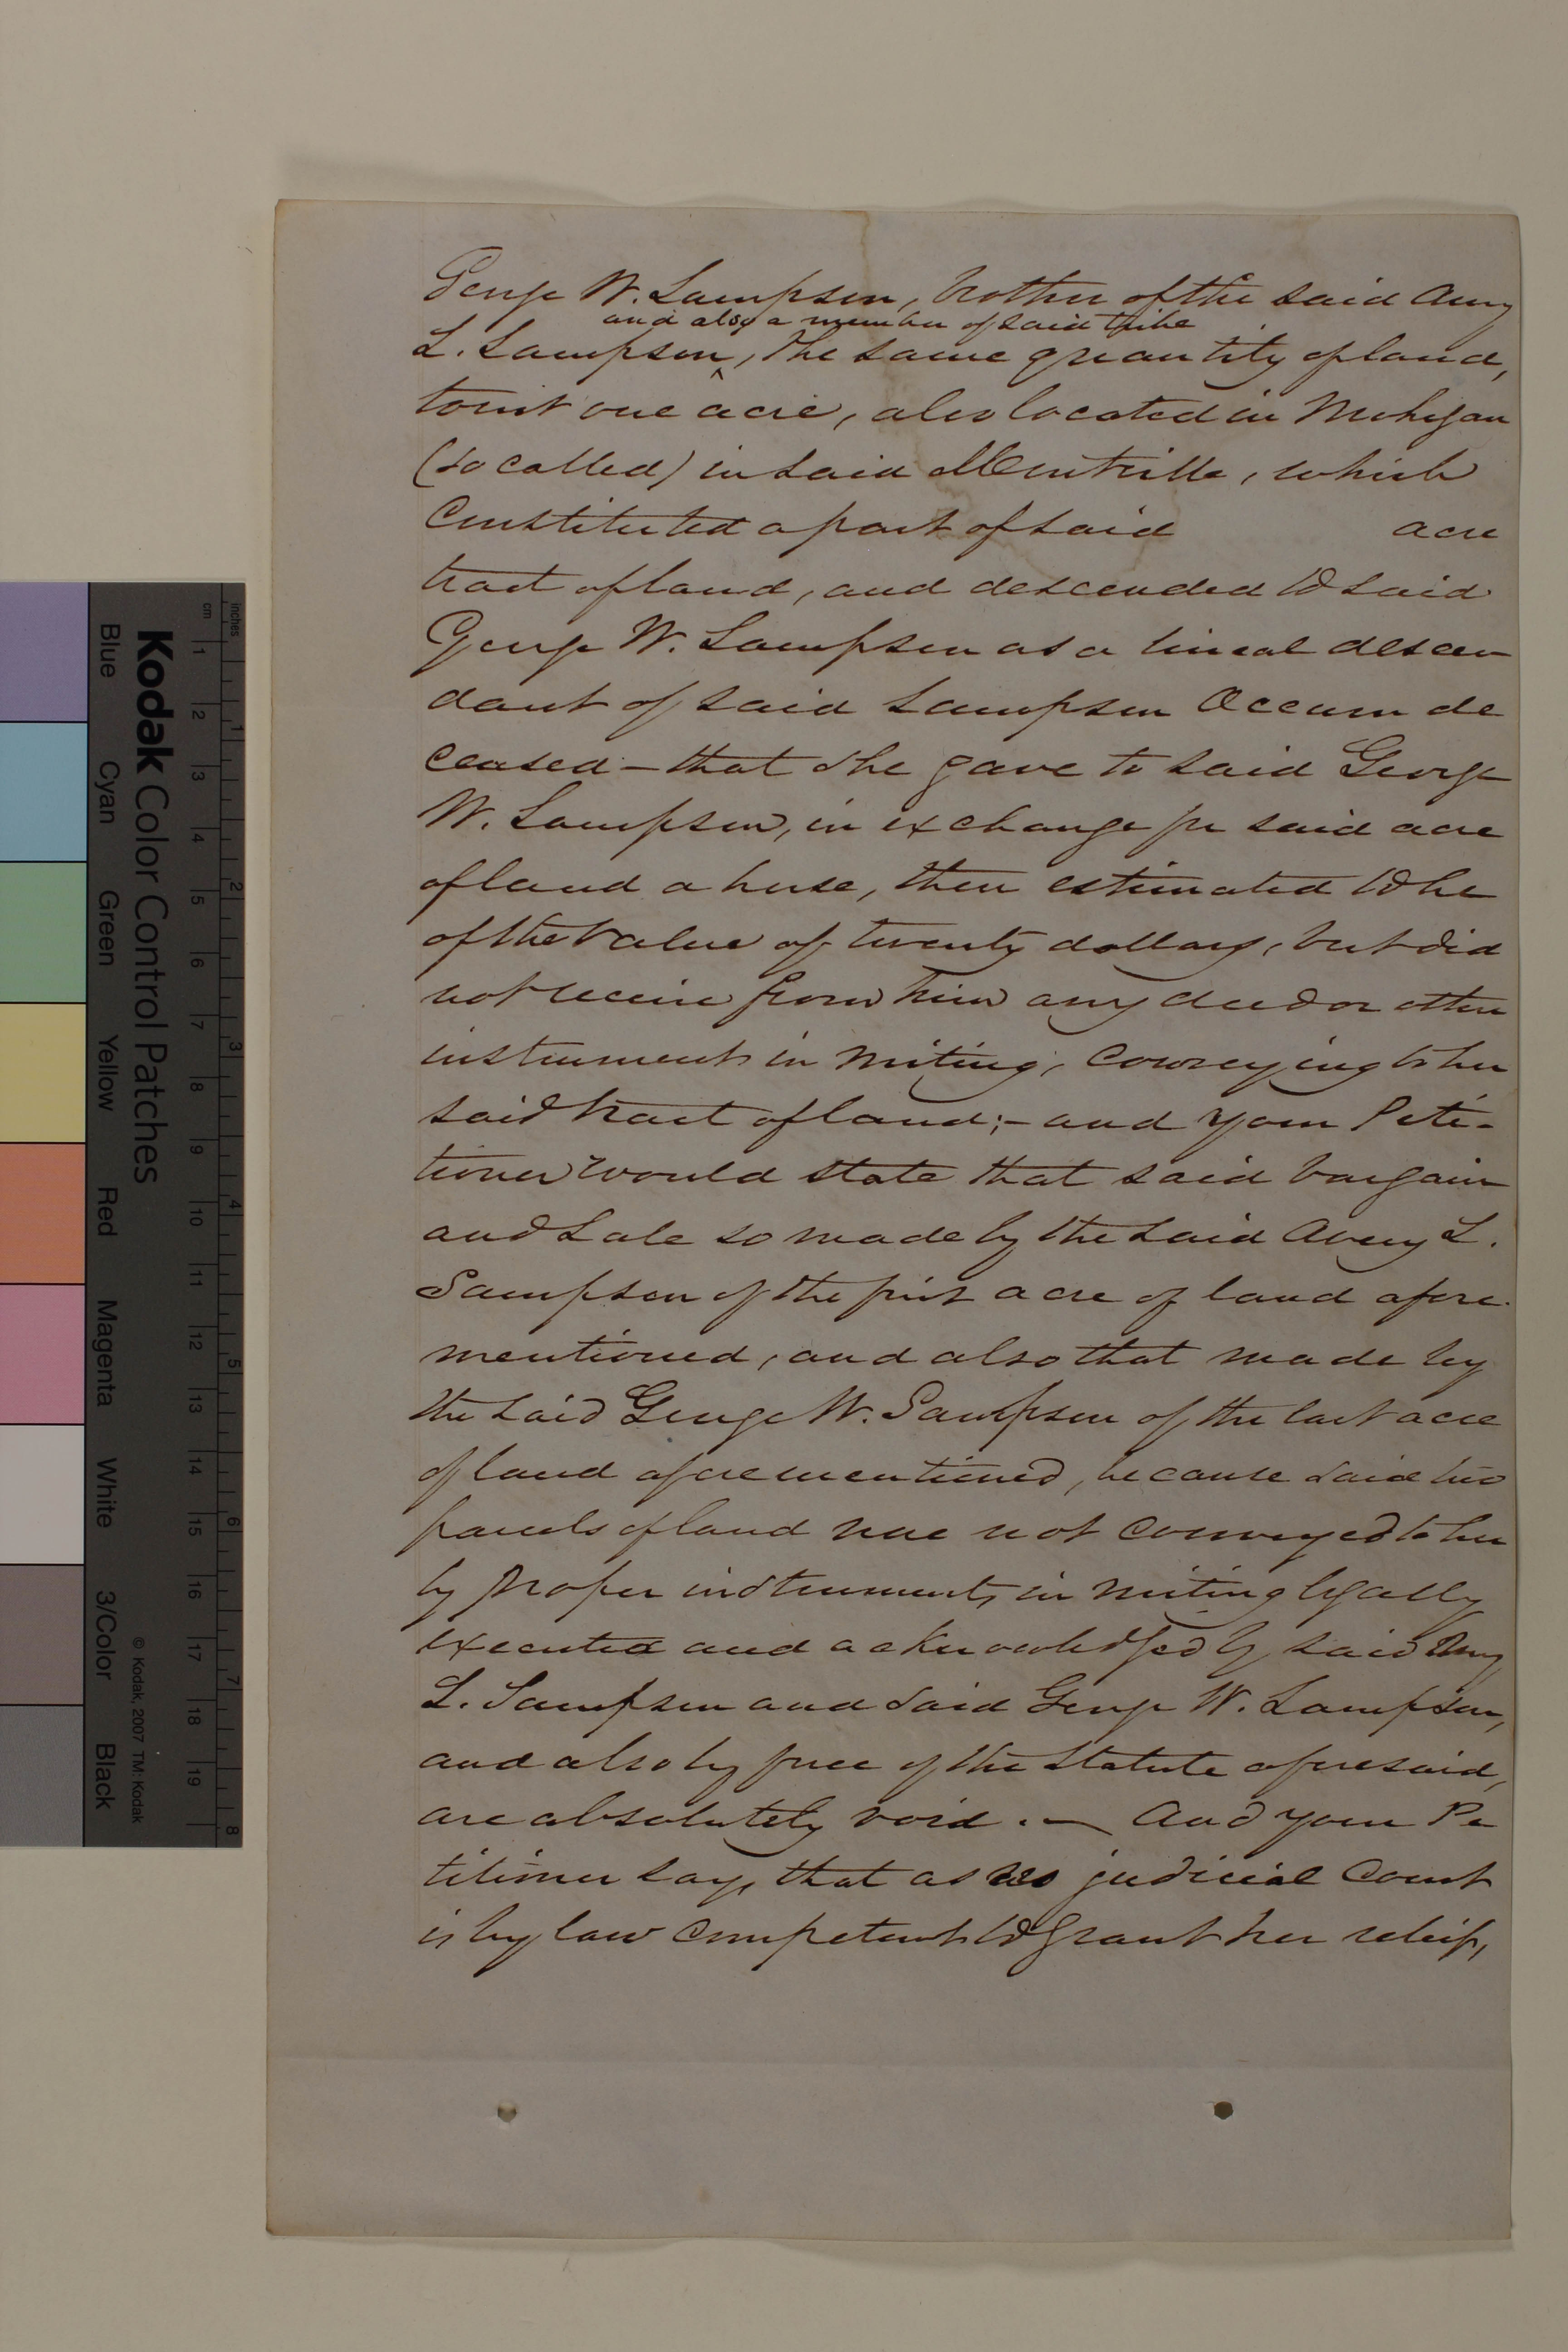 George W. Sampson, brother of the said Amy
and also a member of said tribe
L. Sampson, ^ the same quantity of land,
towit one acre, also located in Mohegan
(so called) in said Montville, which
Constituted a part of said acre
tract of land, and descended to said
George W. Sampson as a lineal descen
dant of said Sampson Occum de
ceased - that she gave to said George
W. Sampson, in exchange for said acre
of land a horse, then estimated to be
of the value of twenty dollars, but did
not receive from him any deed or other
instrument in writing, conveying to her
said tract of land; - and your Peti-
tioner would state that said bargain
and Sale so made by the said Amy L.
Sampson of the first acre of land afore-
mentioned, and also that made by
the said George W. Sampson of the last acre
of land aforementioned, because said two
parcels of land were not conveyed to her
by proper instruments in writing legally
executed and acknowledged by said Amy
L. Sampson and said George W. Sampson,
and also by force of the Statute aforesaid,
are absolutely void. - And your Pe
titioner says, that as no judicial Court
is by law competent to grant her relief,
Kodak Color Control Patches
Blue Cyan Green Yellow Red Magenta White 3/Color Black
© Kodak, 2007 TM: Kodak
inches 1 2 3 4 5 6 7 8
cm 1 2 3 4 5 6 7 8 9 10 11 12 13 14 15 16 17 18 19